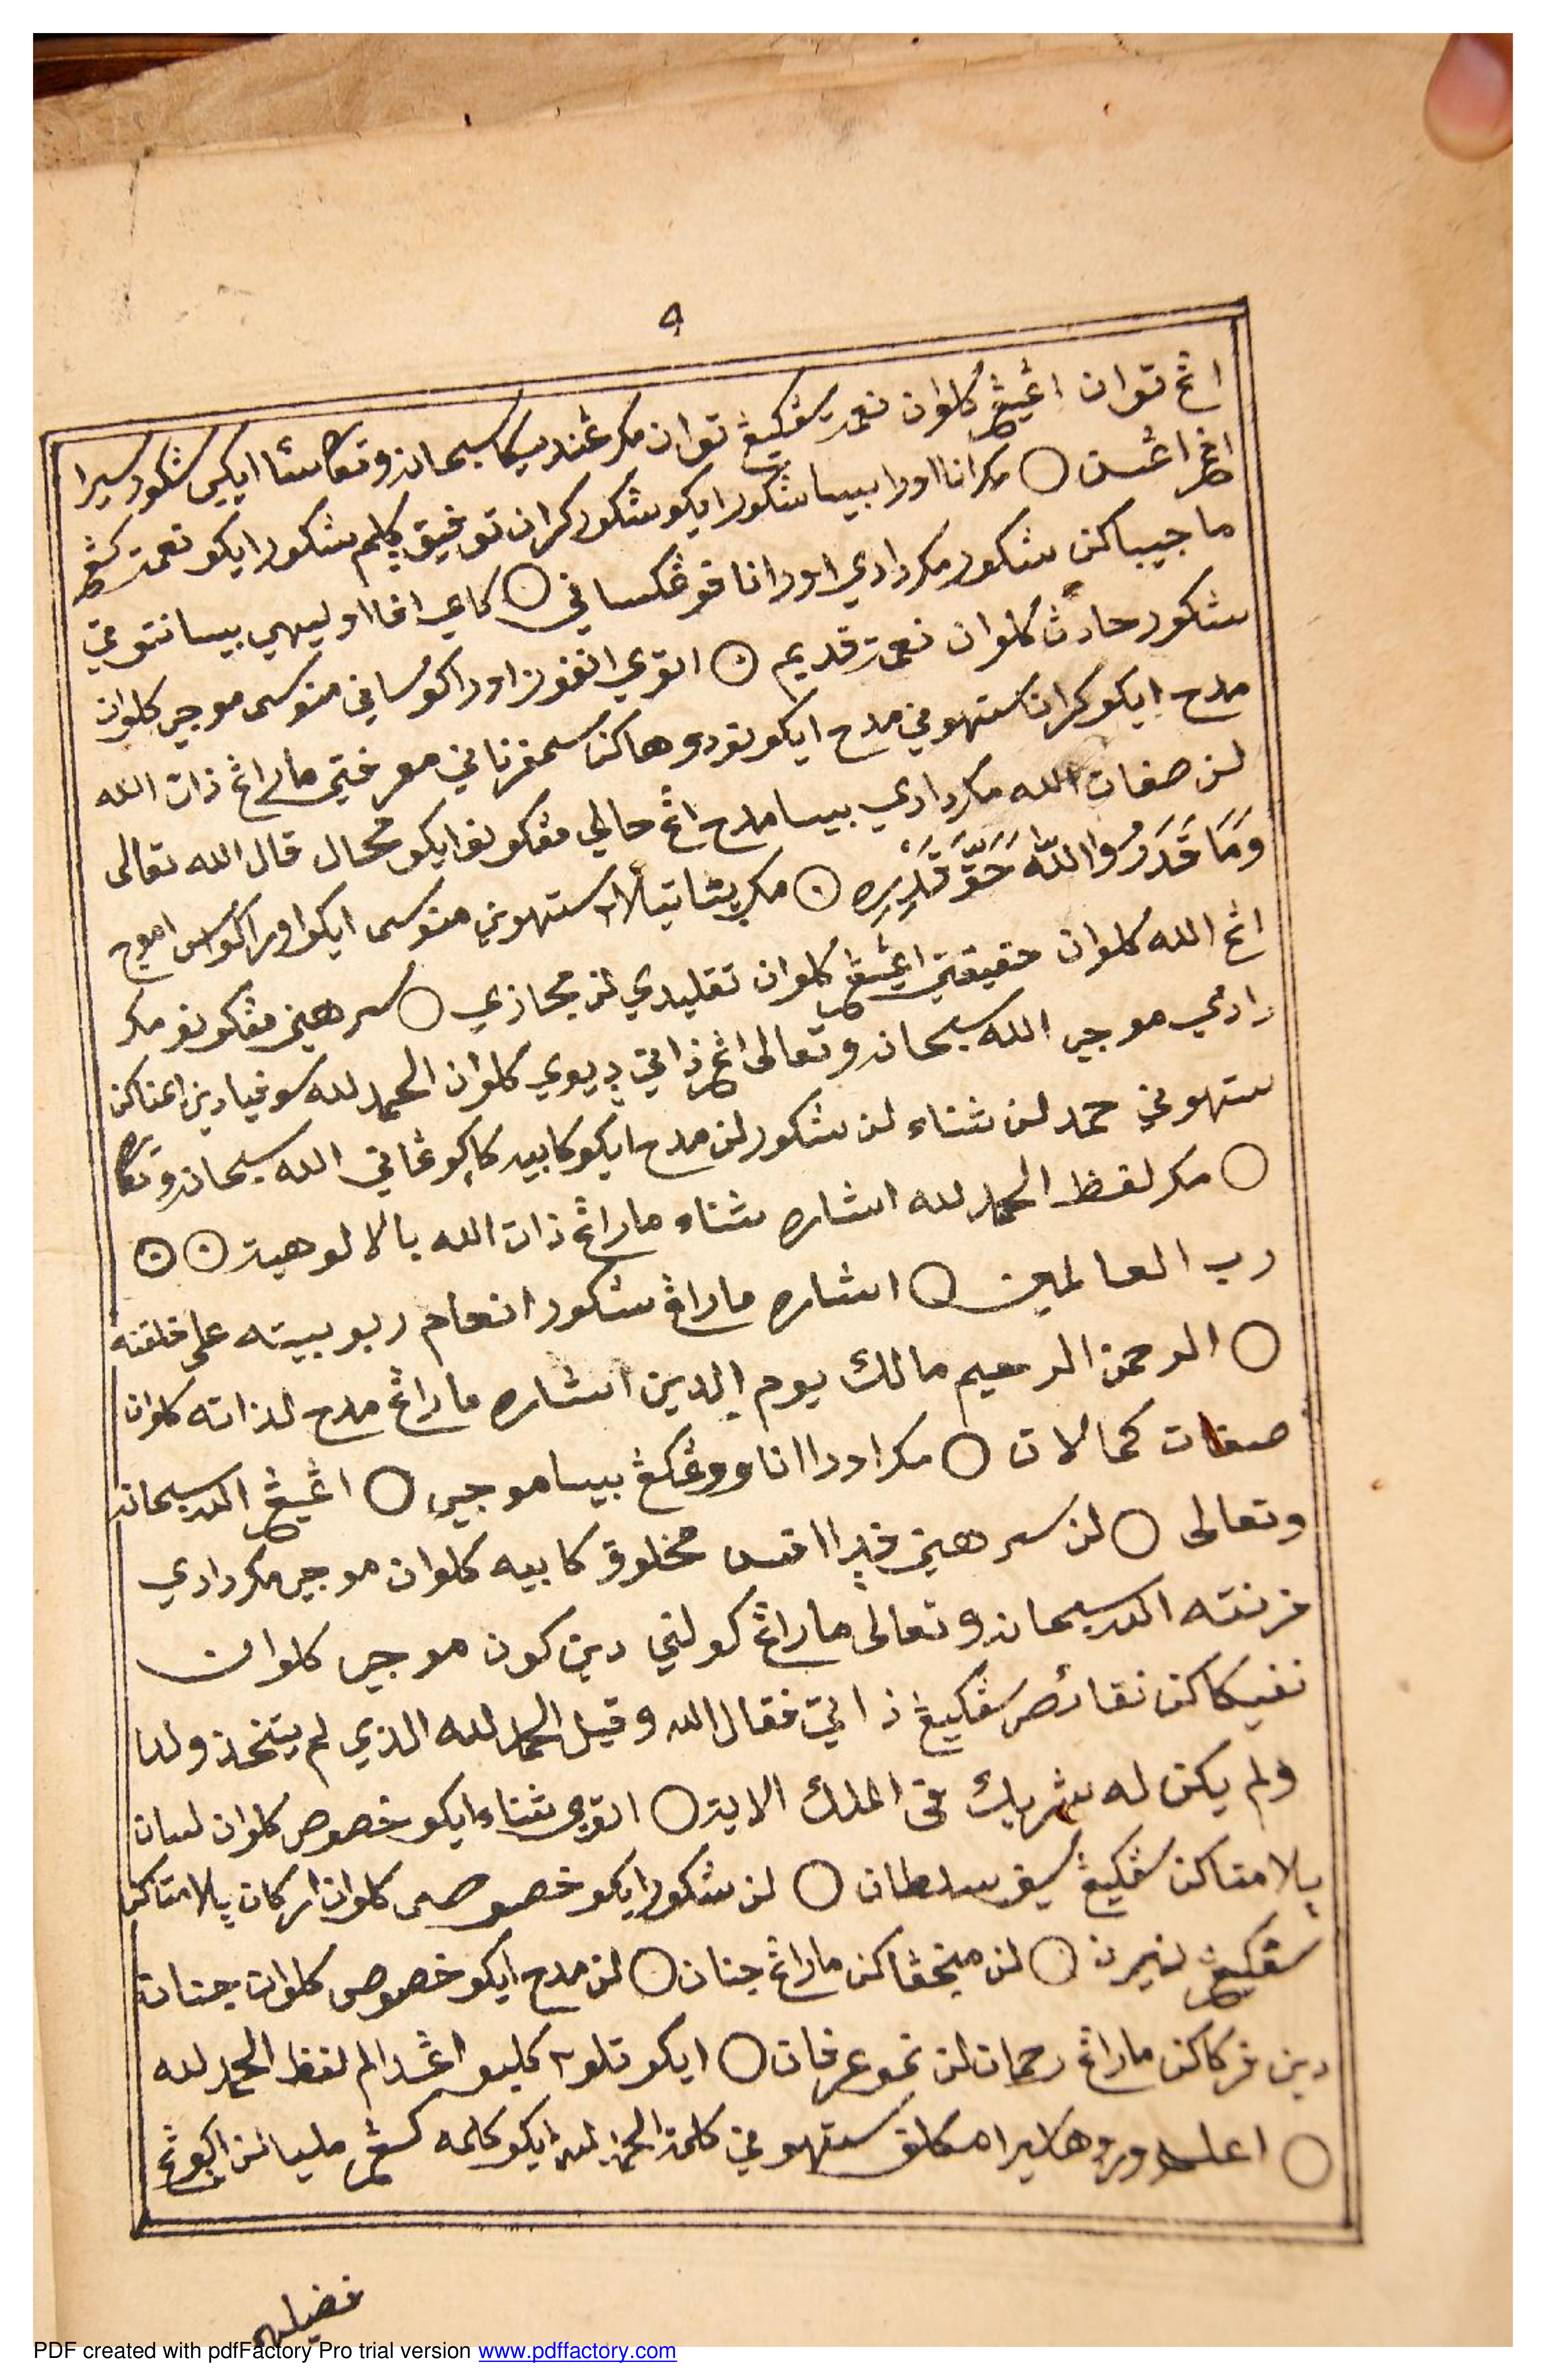 ٩
اڠ توان اڠيڠ كلوان نعمة سڠكيڠ توان مكر ڠنديكا سبحانه وتعالى ستا ايكي شكور سيرا
اڠ اڠسن ○ مكرانا اورا بيسا شكور ايكو شكور كران توفيق كلم شكور ايكو نعمة كڠ
ماجيباكن شكور مكر دادي اورانا فوڠكساني ○ كاي افا اوليهي بيسا نتوڤي
شكور حادث كلوان نعمة قديم ○ اتوي انفون اورا كواساني منوسى موجي كلوان
مدح ايكو كران ستهوني مدح ايكو نودوهاكن سمفرناني معرفتي ماراڠ ذات الله
لن صفات الله مكر دادي بيسا مدح اڠ حالي مڠكونو ايكو محال قال الله تعالى
وَمَا قَدَرُوا اللّٰهَ حَقَّ قَدْرِهِ ○ مكر پتا تيلا ستهوني منوسى ايكو اورا كواس اموجي
اڠ الله كلوان حقيقتي اڠيڠ كلوان تقليدي لن مجازي ○ سرهنى مڠكونو مكر
دادي موجي الله سبحانه وتعالى اڠ ذاتي ديوي كلوان الحمد لله سوفيا دين اڠناكن
ستهوني حمد لن ثناء لن شكور لن مدح ايكو كابيه كاكوڠاني الله سبحانه وتعالى
○ مكر لفظ الحمد لله اشاره ثناء ماراڠ ذات الله بالالوهية ○ ○
رب العالمين ○ اشاره ماراڠ شكور انعام ربوبيته على خلقته
○ الرحمن الرحيم مالك يوم الدين اشاره ماراڠ مدح لذاته كلوان
صفات كمالات ○ مكر اورا انا ووڠكڠ بيسا موجي ○ اڠيڠ الله سبحانه
وتعالى ○ لن سرهنى فيرا٢ افس مخلوق كابيه كلوان موجي مكر دادي
فرنته الله سبحانه وتعالى ماراڠ كولني دين كون موجي كلوان
نفيكاكن نقائص سڠكيڠ ذاتي فقال الله وقيل الحمد لله الذي لم يتخذ ولدا
ولم يكن له شريك فى الملك الاية ○ اتوي ثناء ايكو خصوص كلوان لسان
پلامتاكن سڠكيڠ سلطان ○ لن شكور ايكو خصوص كلوان اركان پلامتاكن
سڠكيڠ نيران ○ لن منجڠاكن ماراڠ جنان ○ لن مدح ايكو خصوص كلوان جنان
دين فركاكن ماراڠ رحمان لن نمو عرفان ○ ايكو تلو كليمو اڠدالم لفظ الحمد لله
○ اعلم وروها سيرا مكلف ستهوني كلمة الحمد لله ايكو كلمه كڠ مليا لن اكوڠ
فضيله
PDF created with pdfFactory Pro trial version www.pdffactory.com